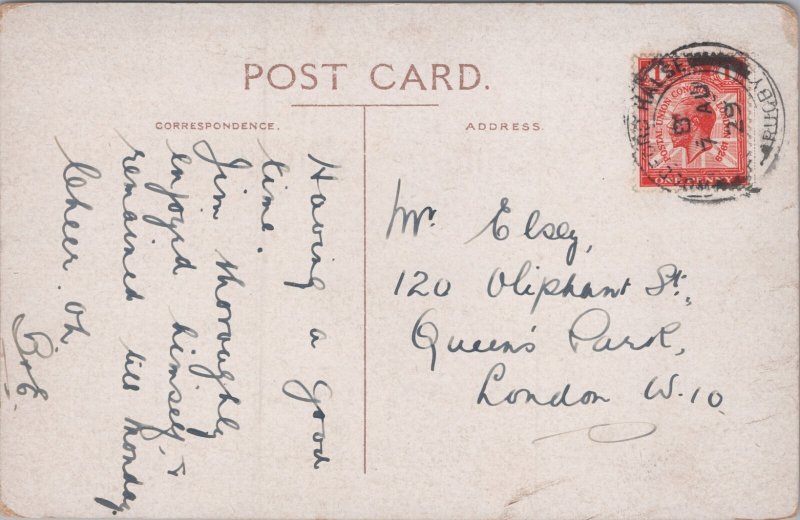 POST CARD.
CORRESPONDENCE.
ADDRESS.
Having a good
time.
Jim thoroughly
enjoyed himself, &
remained till Monday.
Cheer. Oh,
Bob.
Mr Elsey,
120 Oliphant St.,
Queen's Park,
London W.10
POSTAL UNION CONGRESS
LONDON 1929
ONE PENNY
RUGBY
AU
29